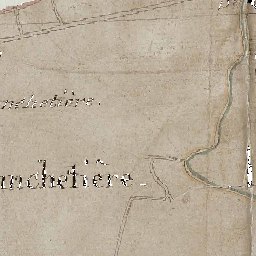 nchetière.
nchetière.